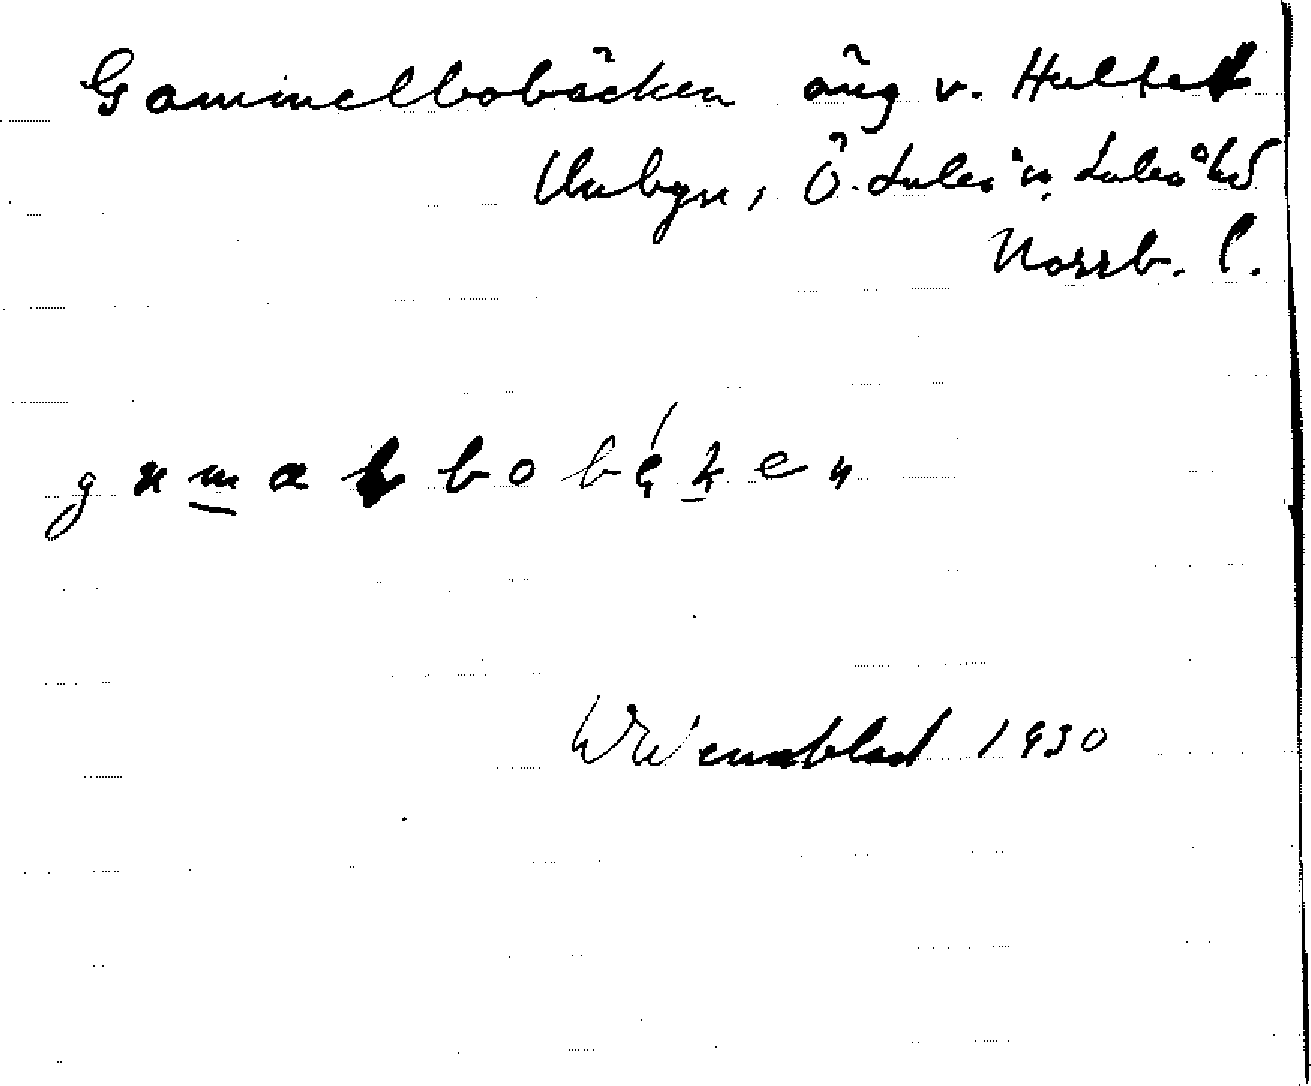 Gammelbobäcken äng v. Hultet
Unbyn, Ö. Luleå sn, Luleå hd
Norrb. l.
W Wennblad 1930